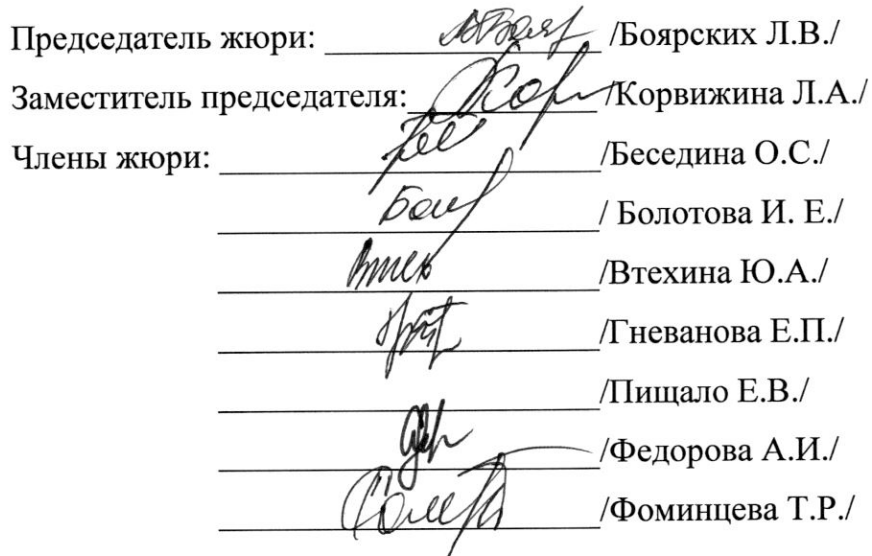 Председатель жюри: /Боярских Л.В./
Заместитель председателя: /Корвижина Л.А./
Члены жюри: /Беседина О.С./
/ Болотова И. Е./
/Втехина Ю.А./
/Гневанова Е.П./
/Пищало Е.В./
/Федорова А.И./
/Фоминцева Т.Р./